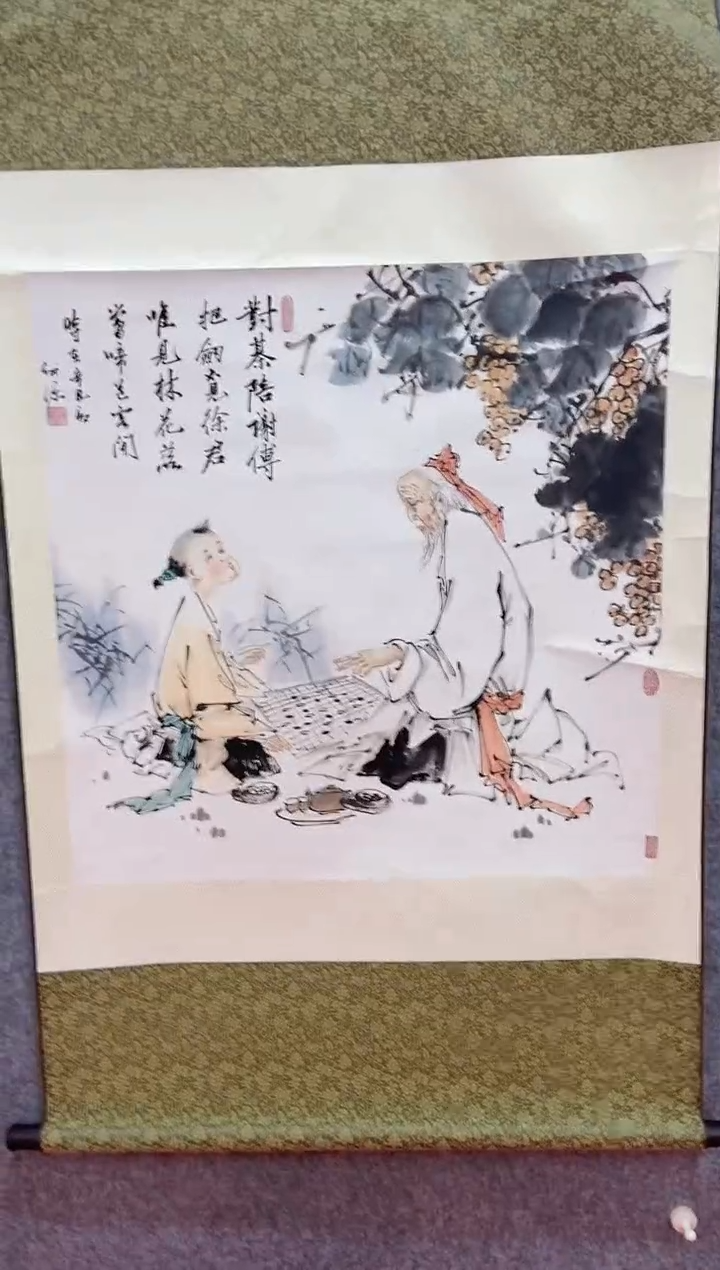 對棊陪謝傅
把劍覓徐君
唯見林花落
鶯啼送客聞
時在辛